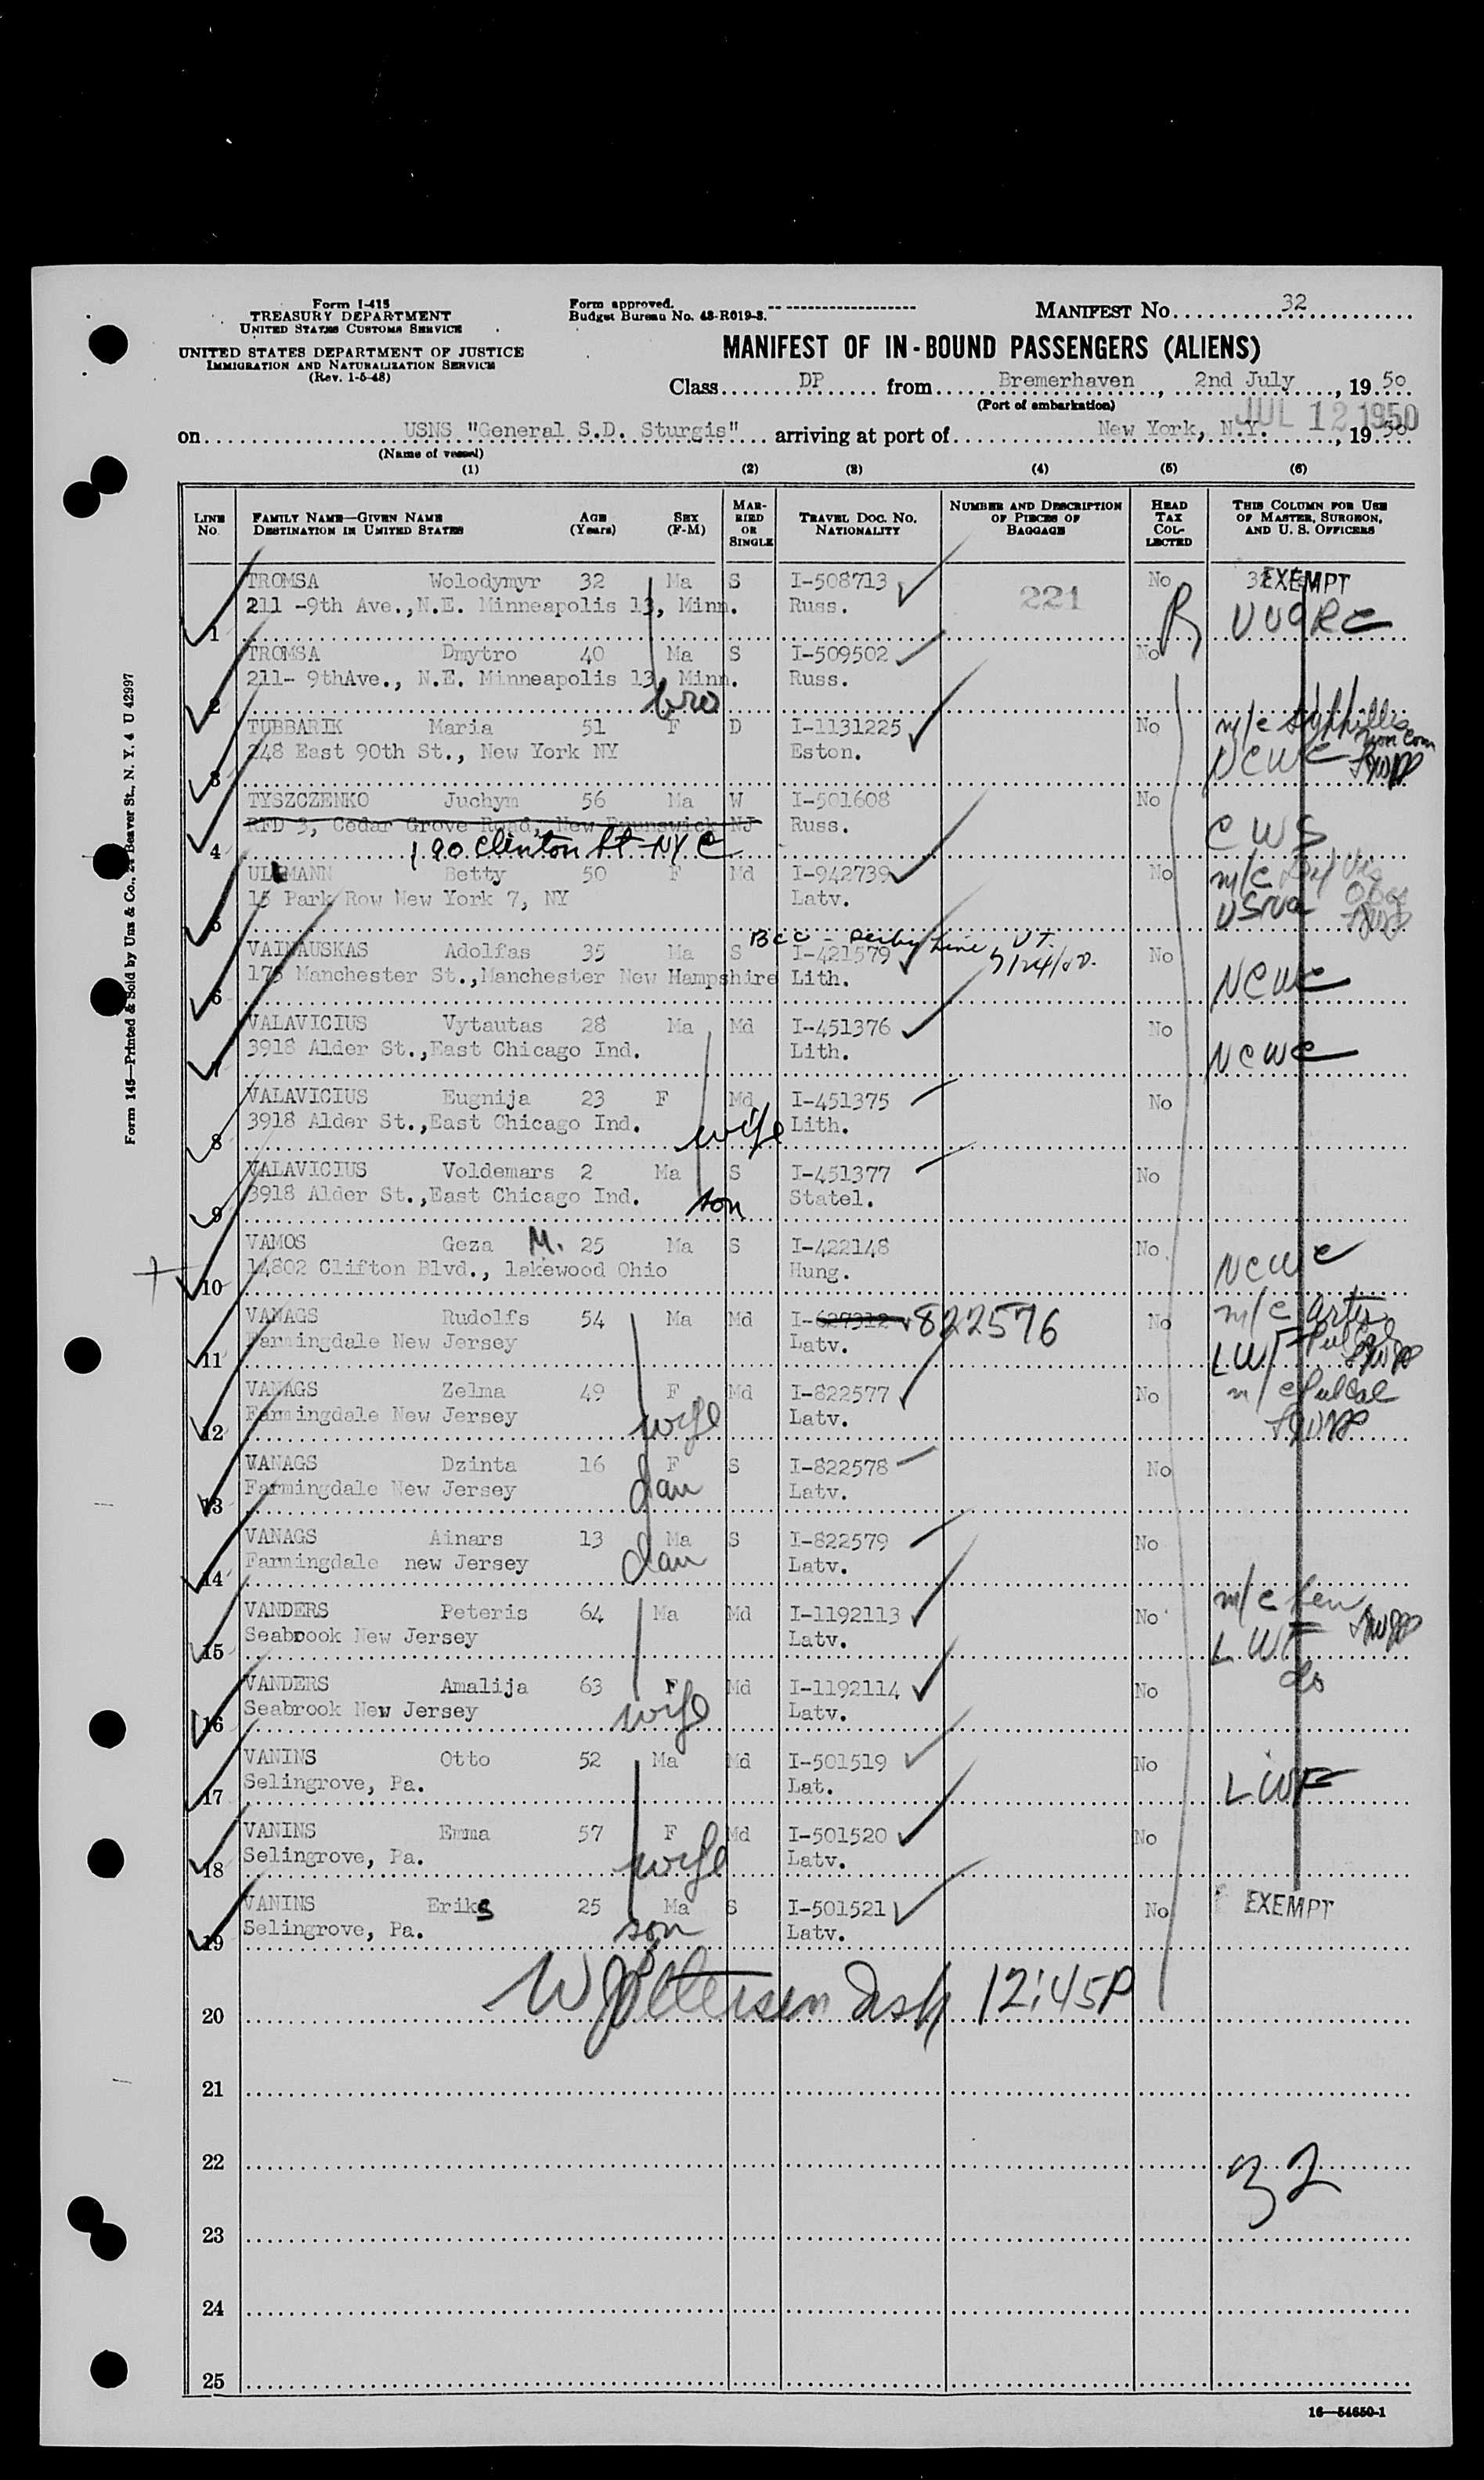 Form I-415
TREASURY DEPARTMENT
UNITED STATES CUSTOMS SERVICE
UNITED STATES DEPARTMENT OF JUSTICE
IMMIGRATION AND NATURALIZATION SERVICE
(Rev. 1-5-48)
Form approved.
Budget Bureau No. 43-R019-3.
MANIFEST NO. 32
MANIFEST OF IN-BOUND PASSENGERS (ALIENS)
Class DP from Bremerhaven, 2nd July, 19 50
(Port of embarkation)
JUL 12 1950
on USNS "General S.D. Sturgis" arriving at port of New York, N.Y., 19 50
(Name of vessel)
(1) (2) (3) (4) (5) (6)
LINE NO. FAMILY NAME—GIVEN NAME DESTINATION IN UNITED STATES AGE (Years) SEX (F-M) MARRIED OR SINGLE TRAVEL DOC. NO. NATIONALITY NUMBER AND DESCRIPTION OF PIECES OF BAGGAGE HEAD TAX COLLECTED THIS COLUMN FOR USE OF MASTER, SURGEON, AND U. S. OFFICERS
TROMSA Wolodymyr 32 Ma S I-508713 221 No EXEMPT
1 211 -9th Ave.,N.E. Minneapolis 13, Minn. Russ.
TROMSA Dmytro 40 Ma S I-509502 No
2 211- 9thAve., N.E. Minneapolis 13, Minn. Russ.
bro
TUBBARIK Maria 51 F D I-1131225 No m/c syphillis non com
3 248 East 90th St., New York NY Eston. NCWC
TYSZCZENKO Juchym 56 Ma W I-501608 No
4 RFD 3, Cedar Grove Road, New Brunswick NJ Russ. CWS
190 Clinton St - NYC
ULLMANN Betty 50 F Md I-942739 No m/c
5 15 Park Row New York 7, NY Latv. USNA
BCC - Derby Line, VT. 7/24/50.
VAINAUSKAS Adolfas 35 Ma S I-421579 No
6 175 Manchester St.,Manchester New Hampshire Lith. NCWC
VALAVICIUS Vytautas 28 Ma Md I-451376 No
7 3918 Alder St.,East Chicago Ind. Lith. NCWC
VALAVICIUS Eugnija 23 F Md I-451375 No
8 3918 Alder St.,East Chicago Ind. wife Lith.
VALAVICIUS Voldemars 2 Ma S I-451377 No
9 3918 Alder St.,East Chicago Ind. son Statel.
VAMOS Geza M. 25 Ma S I-422148 No
10 14802 Clifton Blvd., lakewood Ohio Hung. NCWC
VANAGS Rudolfs 54 Ma Md I-627312 822576 No m/c
11 Farmingdale New Jersey Latv. LWF
VANAGS Zelma 49 F Md I-822577 No m/c
12 Farmingdale New Jersey wife Latv.
VANAGS Dzinta 16 F S I-822578 No
13 Farmingdale New Jersey dau Latv.
VANAGS Ainars 13 Ma S I-822579 No
14 Farmingdale new Jersey dau Latv.
VANDERS Peteris 64 Ma Md I-1192113 No m/c Sen
15 Seabrook New Jersey Latv. LWF
VANDERS Amalija 63 F Md I-1192114 No do
16 Seabrook New Jersey wife Latv.
VANINS Otto 52 Ma Md I-501519 No
17 Selingrove, Pa. Lat. LWF
VANINS Emma 57 F Md I-501520 No
18 Selingrove, Pa. wife Latv.
VANINS Eriks 25 Ma S I-501521 No EXEMPT
19 Selingrove, Pa. son Latv.
20 12:45P
21
22 32
23
24
25
16—54650-1
Form 145—Printed & Sold by Unz & Co., 24 Beaver St., N. Y. 4 U 42997